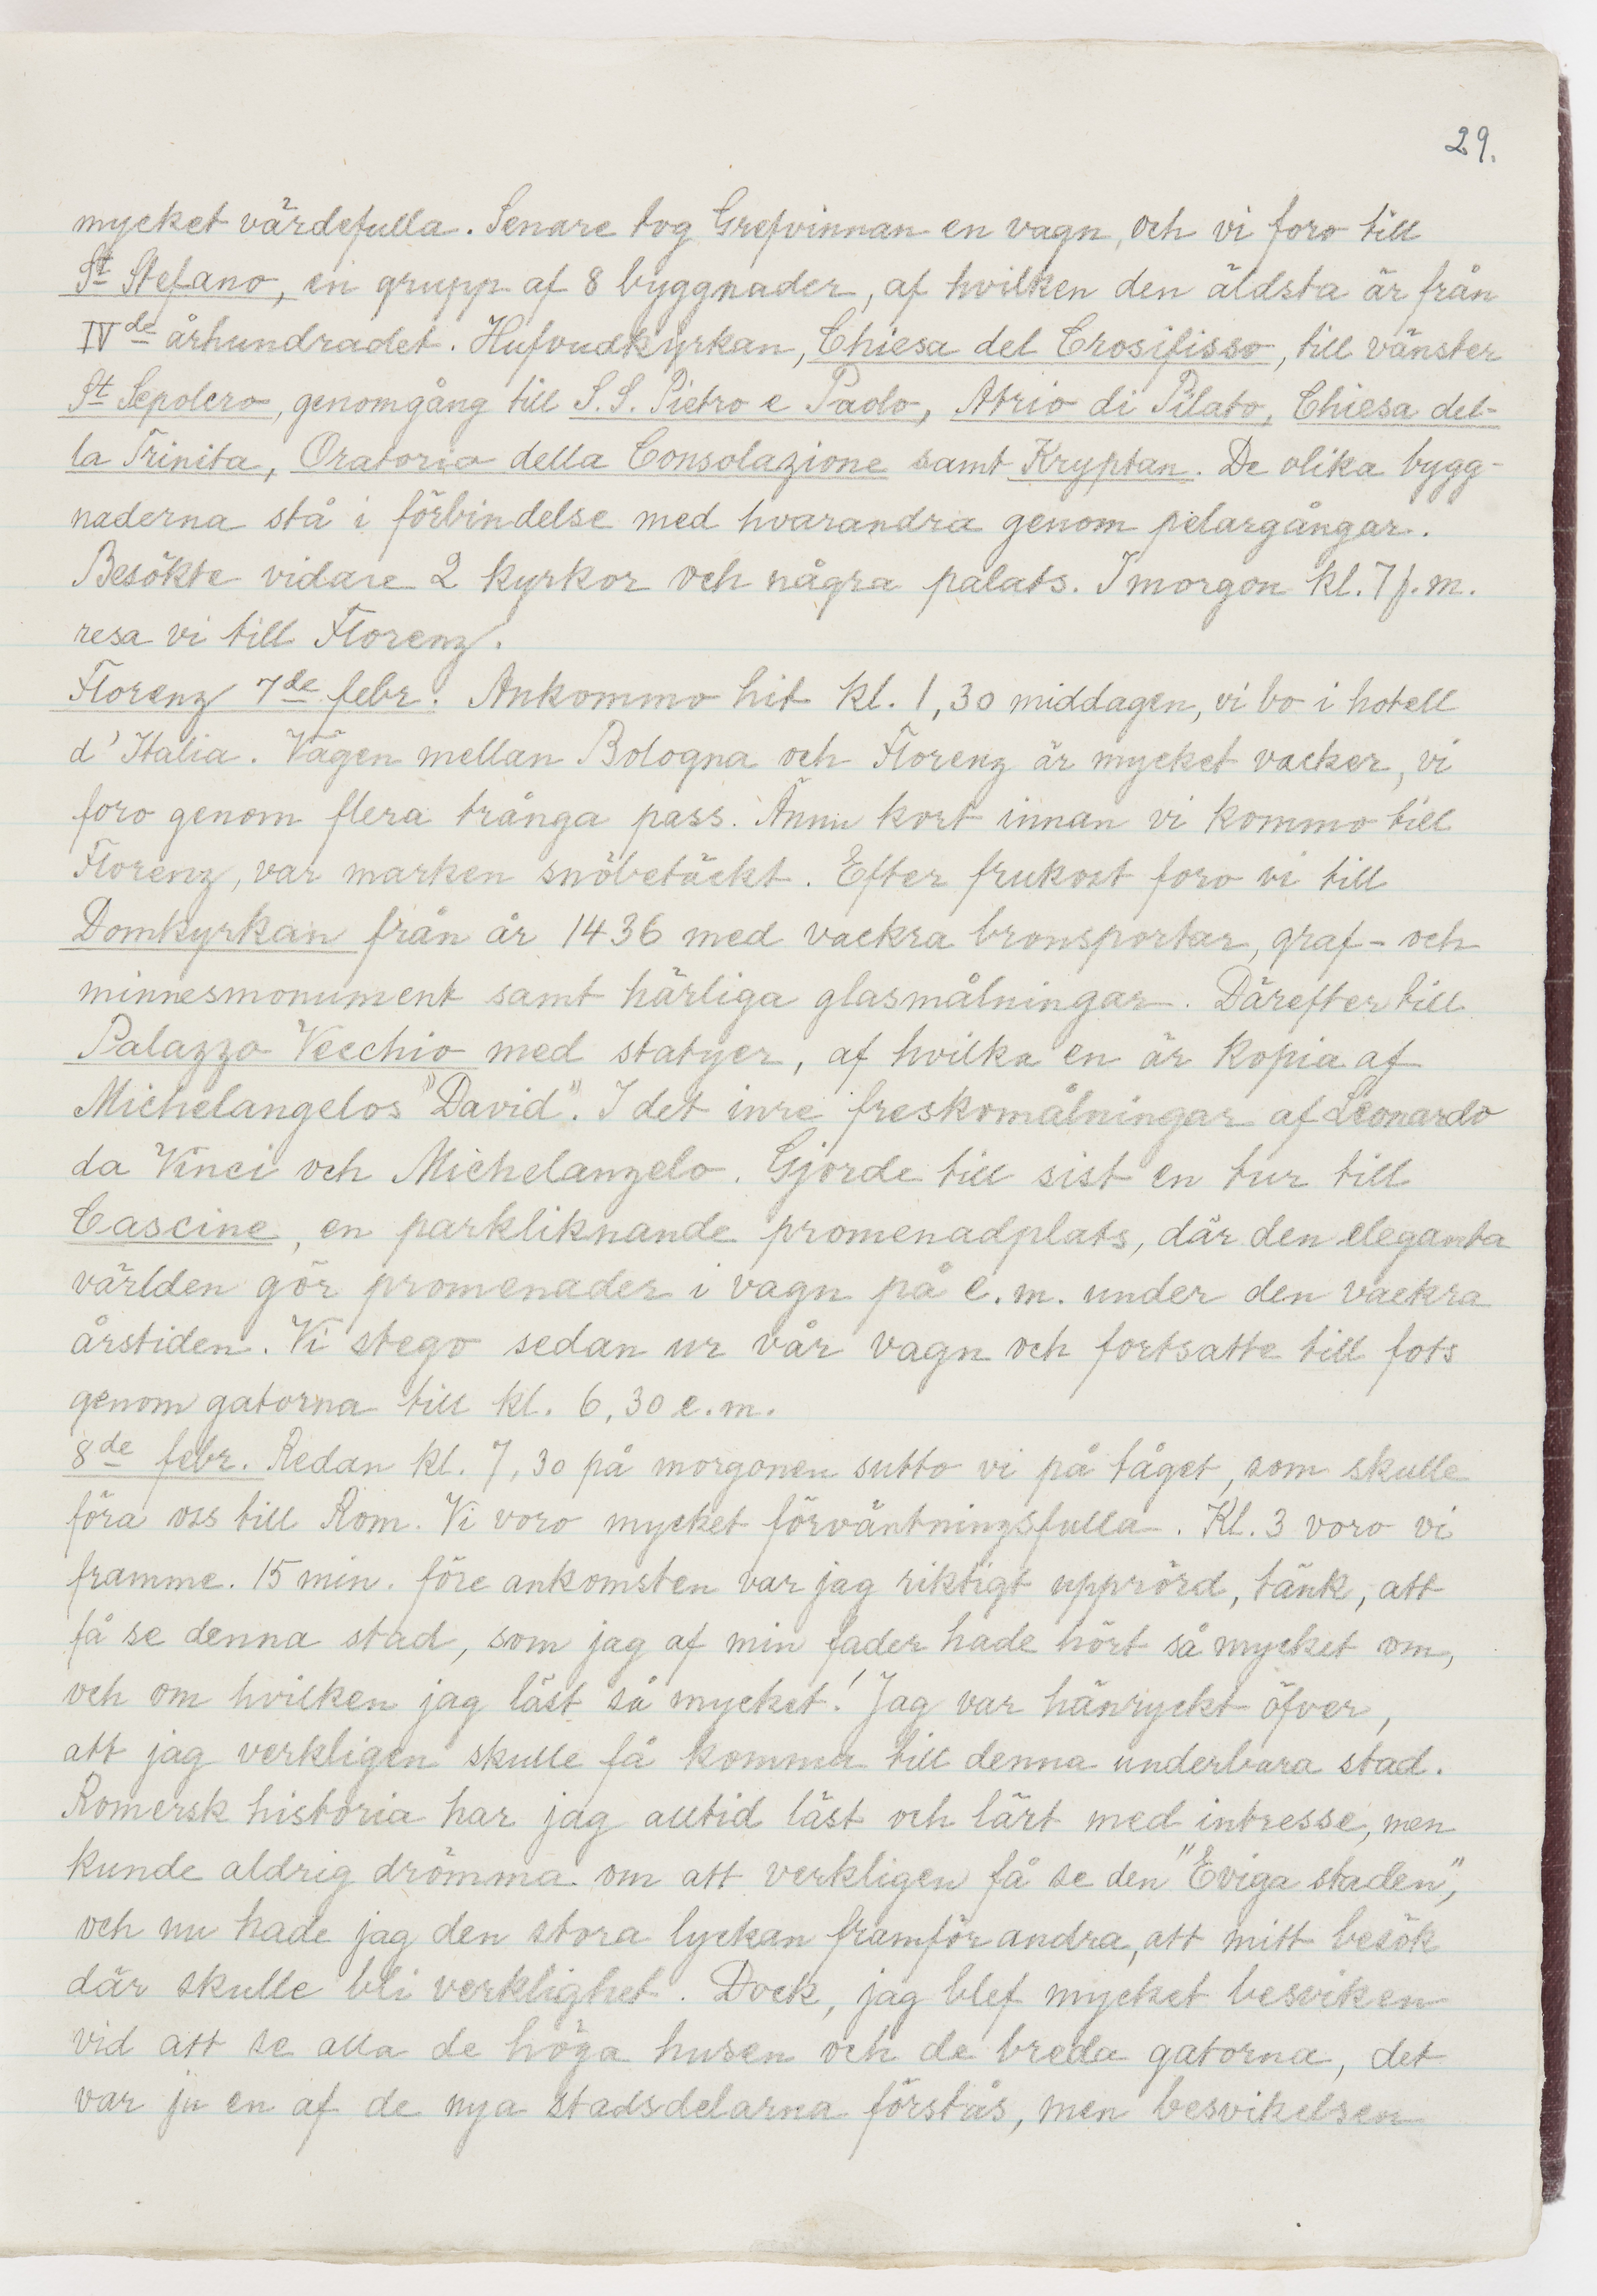 29.
mycket värdefulla. Senare tog Grefvinnan en vagn, och vi foro till
St Stefano, en grupp af 8 byggnader, af hvilken den äldsta är från
IVde århundradet. Hufvudkyrkan, Chiesa del Crosifisso, till vänster
St Sepolcro, genomgång till S.S. Pietro e Paolo, Atrio di Pilato, Chiesa del-
la Trinita, Oratorio della Consolazione samt Kryptan. De olika bygg-
naderna stå i förbindelse med hvarandra genom pelargångar.
Besökte vidare 2 kyrkor och några palats. I morgon kl. 7 f.m.
resa vi till Florenz.
Florenz 7de febr. Ankommo hit kl. 1,30 middagen, vi bo i hotell
d'Italia. Vägen mellan Bologna och Florenz är mycket vacker, vi
foro genom flera trånga pass. Ännu kort innan vi kommo till
Florenz, var marken snöbetäckt. Efter frukost foro vi till
Domkyrkan från år 1436 med vackra bronsportar, graf- och
minnesmonument samt härliga glasmålningar. Därefter till
Palazzo Vecchio med statyer, af hvilka en är kopia af
Michelangelos "David". I det inre freskomålningar af Leonardo
da Vinci och Michelangelo. Gjorde till sist en tur till
Cascine, en parkliknande promenadplats, där den eleganta
världen gör promenader i vagn på e.m. under den vackra
årstiden. Vi stego sedan ur vår vagn och fortsatte till fots
genom gatorna till kl. 6,30 e.m.
8de febr. Redan kl. 7,30 på morgonen sutto vi på tåget, som skulle
föra oss till Rom. Vi voro mycket förväntningsfulla. Kl. 3 voro vi
framme. 15 min. före ankomsten var jag riktigt upprörd, tänk, att
få se denna stad, som jag af min fader hade hört så mycket om,
och om hvilken jag läst så mycket! Jag var hänryckt öfver,
att jag verkligen skulle få komma till denna underbara stad.
Romersk historia har jag alltid läst och lärt med intresse, men
kunde aldrig drömma om att verkligen få se den "Eviga staden",
och nu hade jag den stora lyckan framför andra, att mitt besök
där skulle bli verklighet. Dock, jag blef mycket besviken
vid att se alla de höga husen och de breda gatorna, det
var ju en af de nya stadsdelarna förstås, men besvikelsen